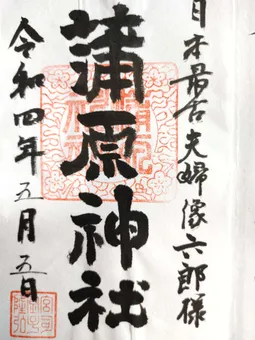 日本最古夫婦像六郎様
蒲原神社
令和四年五月五日